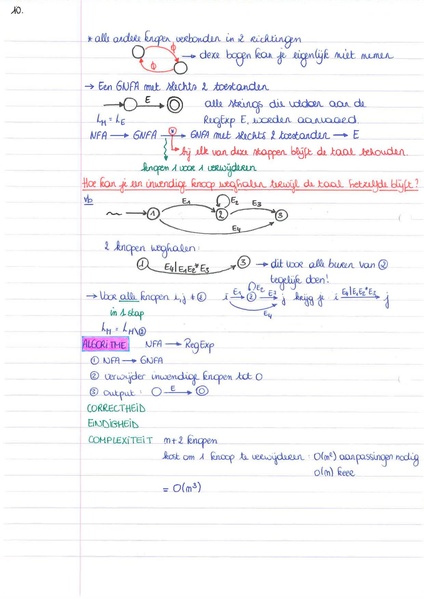 10.
* alle andere knopen verbonden in 2 richtingen
ϕ
→ deze bogen kan je eigenlijk niet nemen
ϕ
→ Een GNFA met slechts 2 toestanden
E
alle strings die voldoen aan de
L_M = L_E
RegExp E, worden aanvaard
NFA → GNFA → GNFA met slechts 2 toestanden → E
* bij elk van deze stappen blijft de taal behouden.
knopen 1 voor 1 verwijderen
Hoe kan je een inwendige knoop weghalen terwijl de taal hetzelfde blijft?
Vb
1 E₁ 2 E₂ E₃ 3
E₄
2 knopen weghalen:
1 E₄|E₁E₂*E₃ 3 → dit voor alle buren van ②
tegelijk doen!
→ Voor alle knopen i, j ≠ ②
i E₁ ② E₂ E₃ j krijg je i E₄|E₁E₂*E₃ j
E₄
in 1 stap
L_M = L_M\②
ALGORITME NFA → RegExp
① NFA → GNFA
② verwijder inwendige knopen tot 0
③ output: E
CORRECTHEID
EINDIGHEID
COMPLEXITEIT m+2 knopen
kost om 1 knoop te verwijderen : O(m²) aanpassingen nodig
O(m) keer
= O(m³)